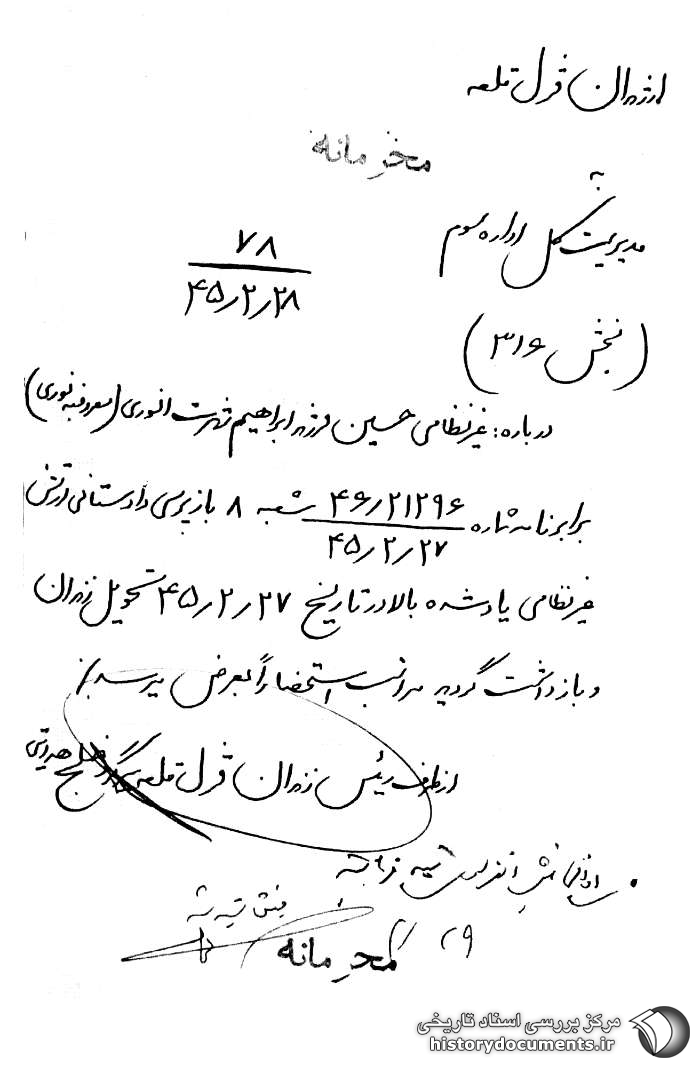 از زندان قزل قلعه
محرمانه
به
مدیریت کل اداره سوم
۷۸
۴۵٫۲٫۲۸
(بخش ۳۱۶)
درباره: غیرنظامی حسین فرزند ابراهیم شهرت انوری (معروف به نوری)
برابر نامه شماره ۴۶٫۲۱۲۹۶ شعبه ۸ بازپرسی دادستانی ارتش
۴۵٫۲٫۲۷
غیرنظامی یاد شده بالا در تاریخ ۴۵٫۲٫۲۷ تحویل زندان
و بازداشت گردید مراتب استحضاراً بعرض میرسد./
از طرف رئیس زندان قزل قلعه
محرمانه
۲٫۲۹
مرکز بررسی اسناد تاریخی
historydocuments.ir